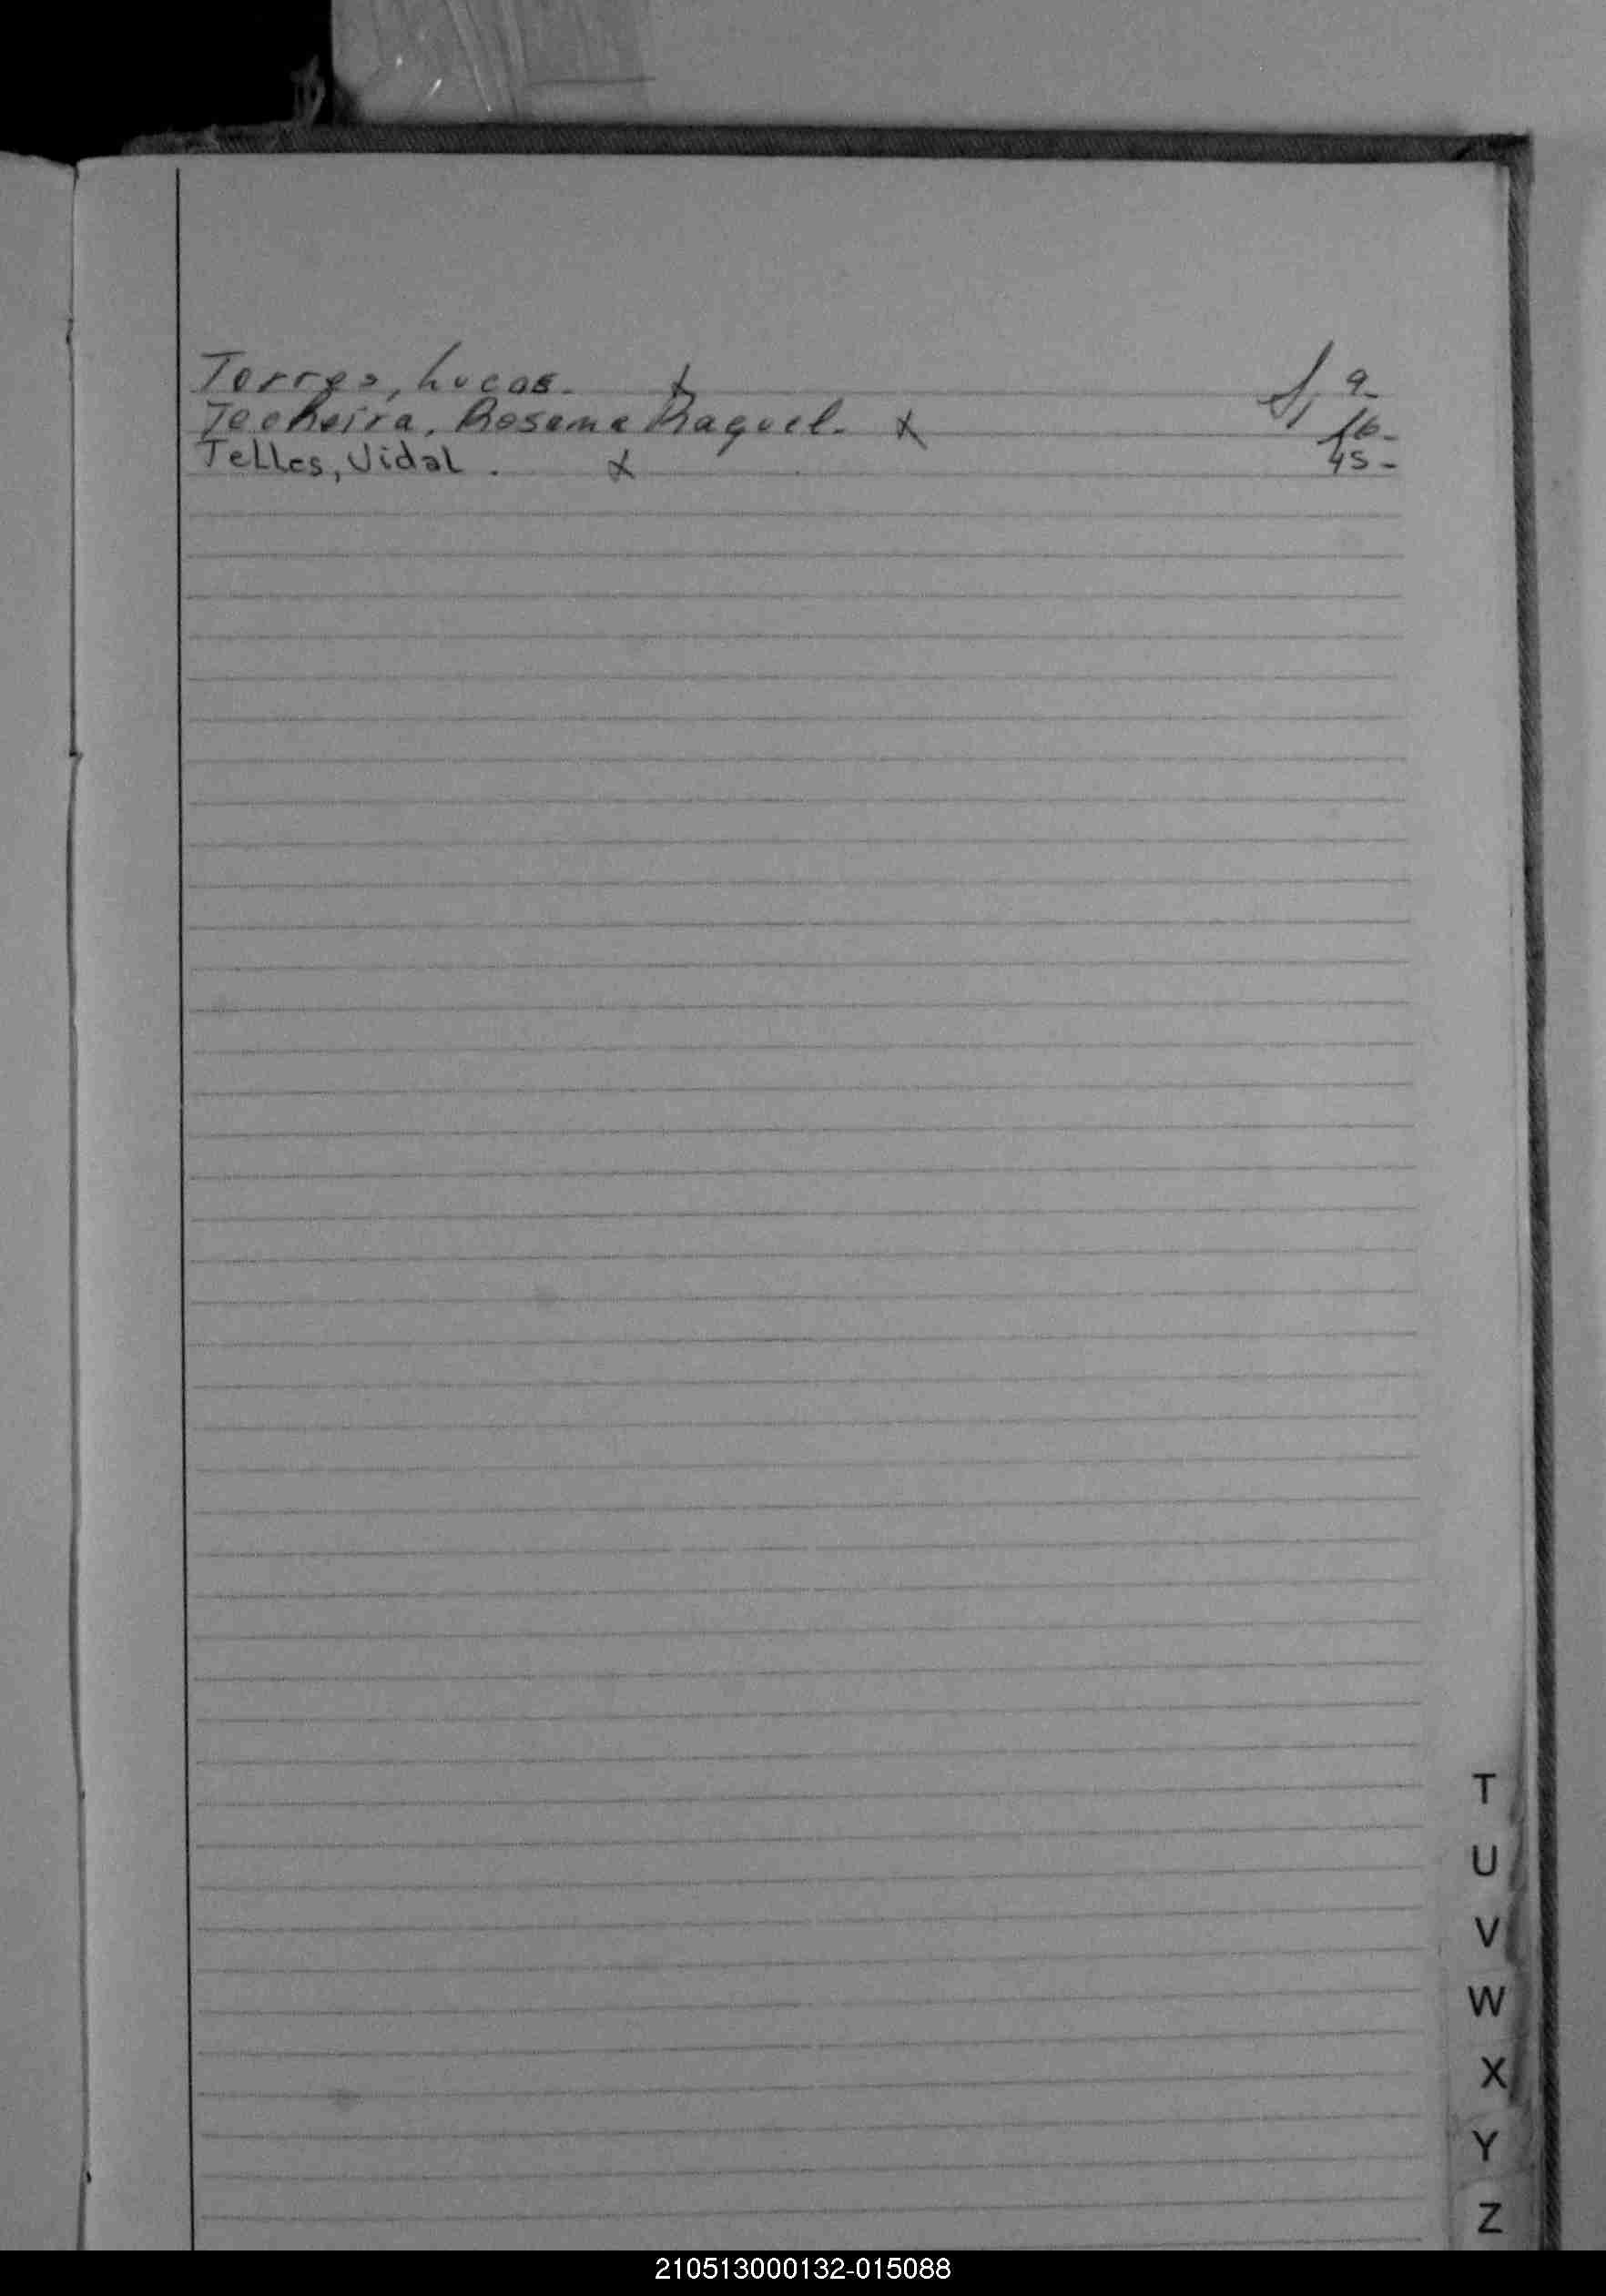 Torres, Lucas. x f, 9-
Techeira, Rosana Raquel. x 16-
Telles, Vidal. x 45-
T
U
V
W
X
Y
Z
210513000132-015088